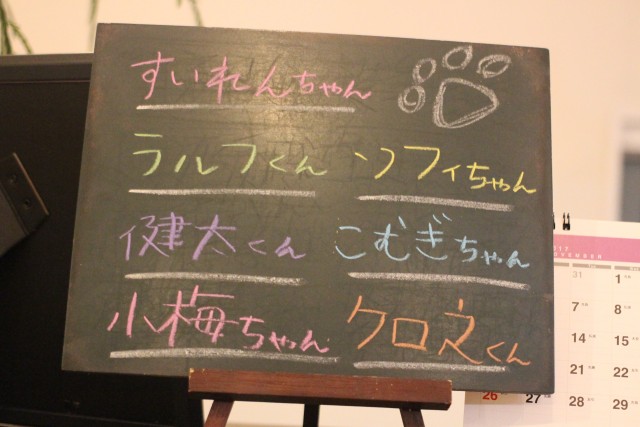 すいれんちゃん
ラルフくん ソフィちゃん
健太くん こむぎちゃん
小梅ちゃん クロ之くん
2017
NOVEMBER
31 1
7 8
14 15
21 22
26 27 28 29